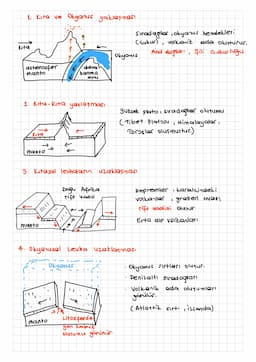 1. Kıta ve Okyanus yaklaşması
Sıradağlar, okyanus hendekleri
(çukur), volkanik ada oluşturur.
And dağları, Şili çukurluğu
Kıta
Okyanus
astenosfer
manto
dalma
batma
2. Kıta-Kıta yaklaşması
Yüksek plato, sıradağlar oluşumu
(Tibet Platosu, Himalayalar,
Toroslar oluşmuştur)
Kıta
manto
3. Kıtasal levhaların uzaklaşması
Doğu Afrika
rift vadisi
Depremler, karalardaki
volkanlar, graben alanı
rift vadisi oluşur
Erta ale volkanları
manto
4. Okyanusal Levha uzaklaşması
Okyanus
Okyanus sırtları oluşur.
Denizaltı sıradağları
Volkanik ada oluşumları
görülür.
(Atlantik sırtı, İzlanda)
manto
Litosferde